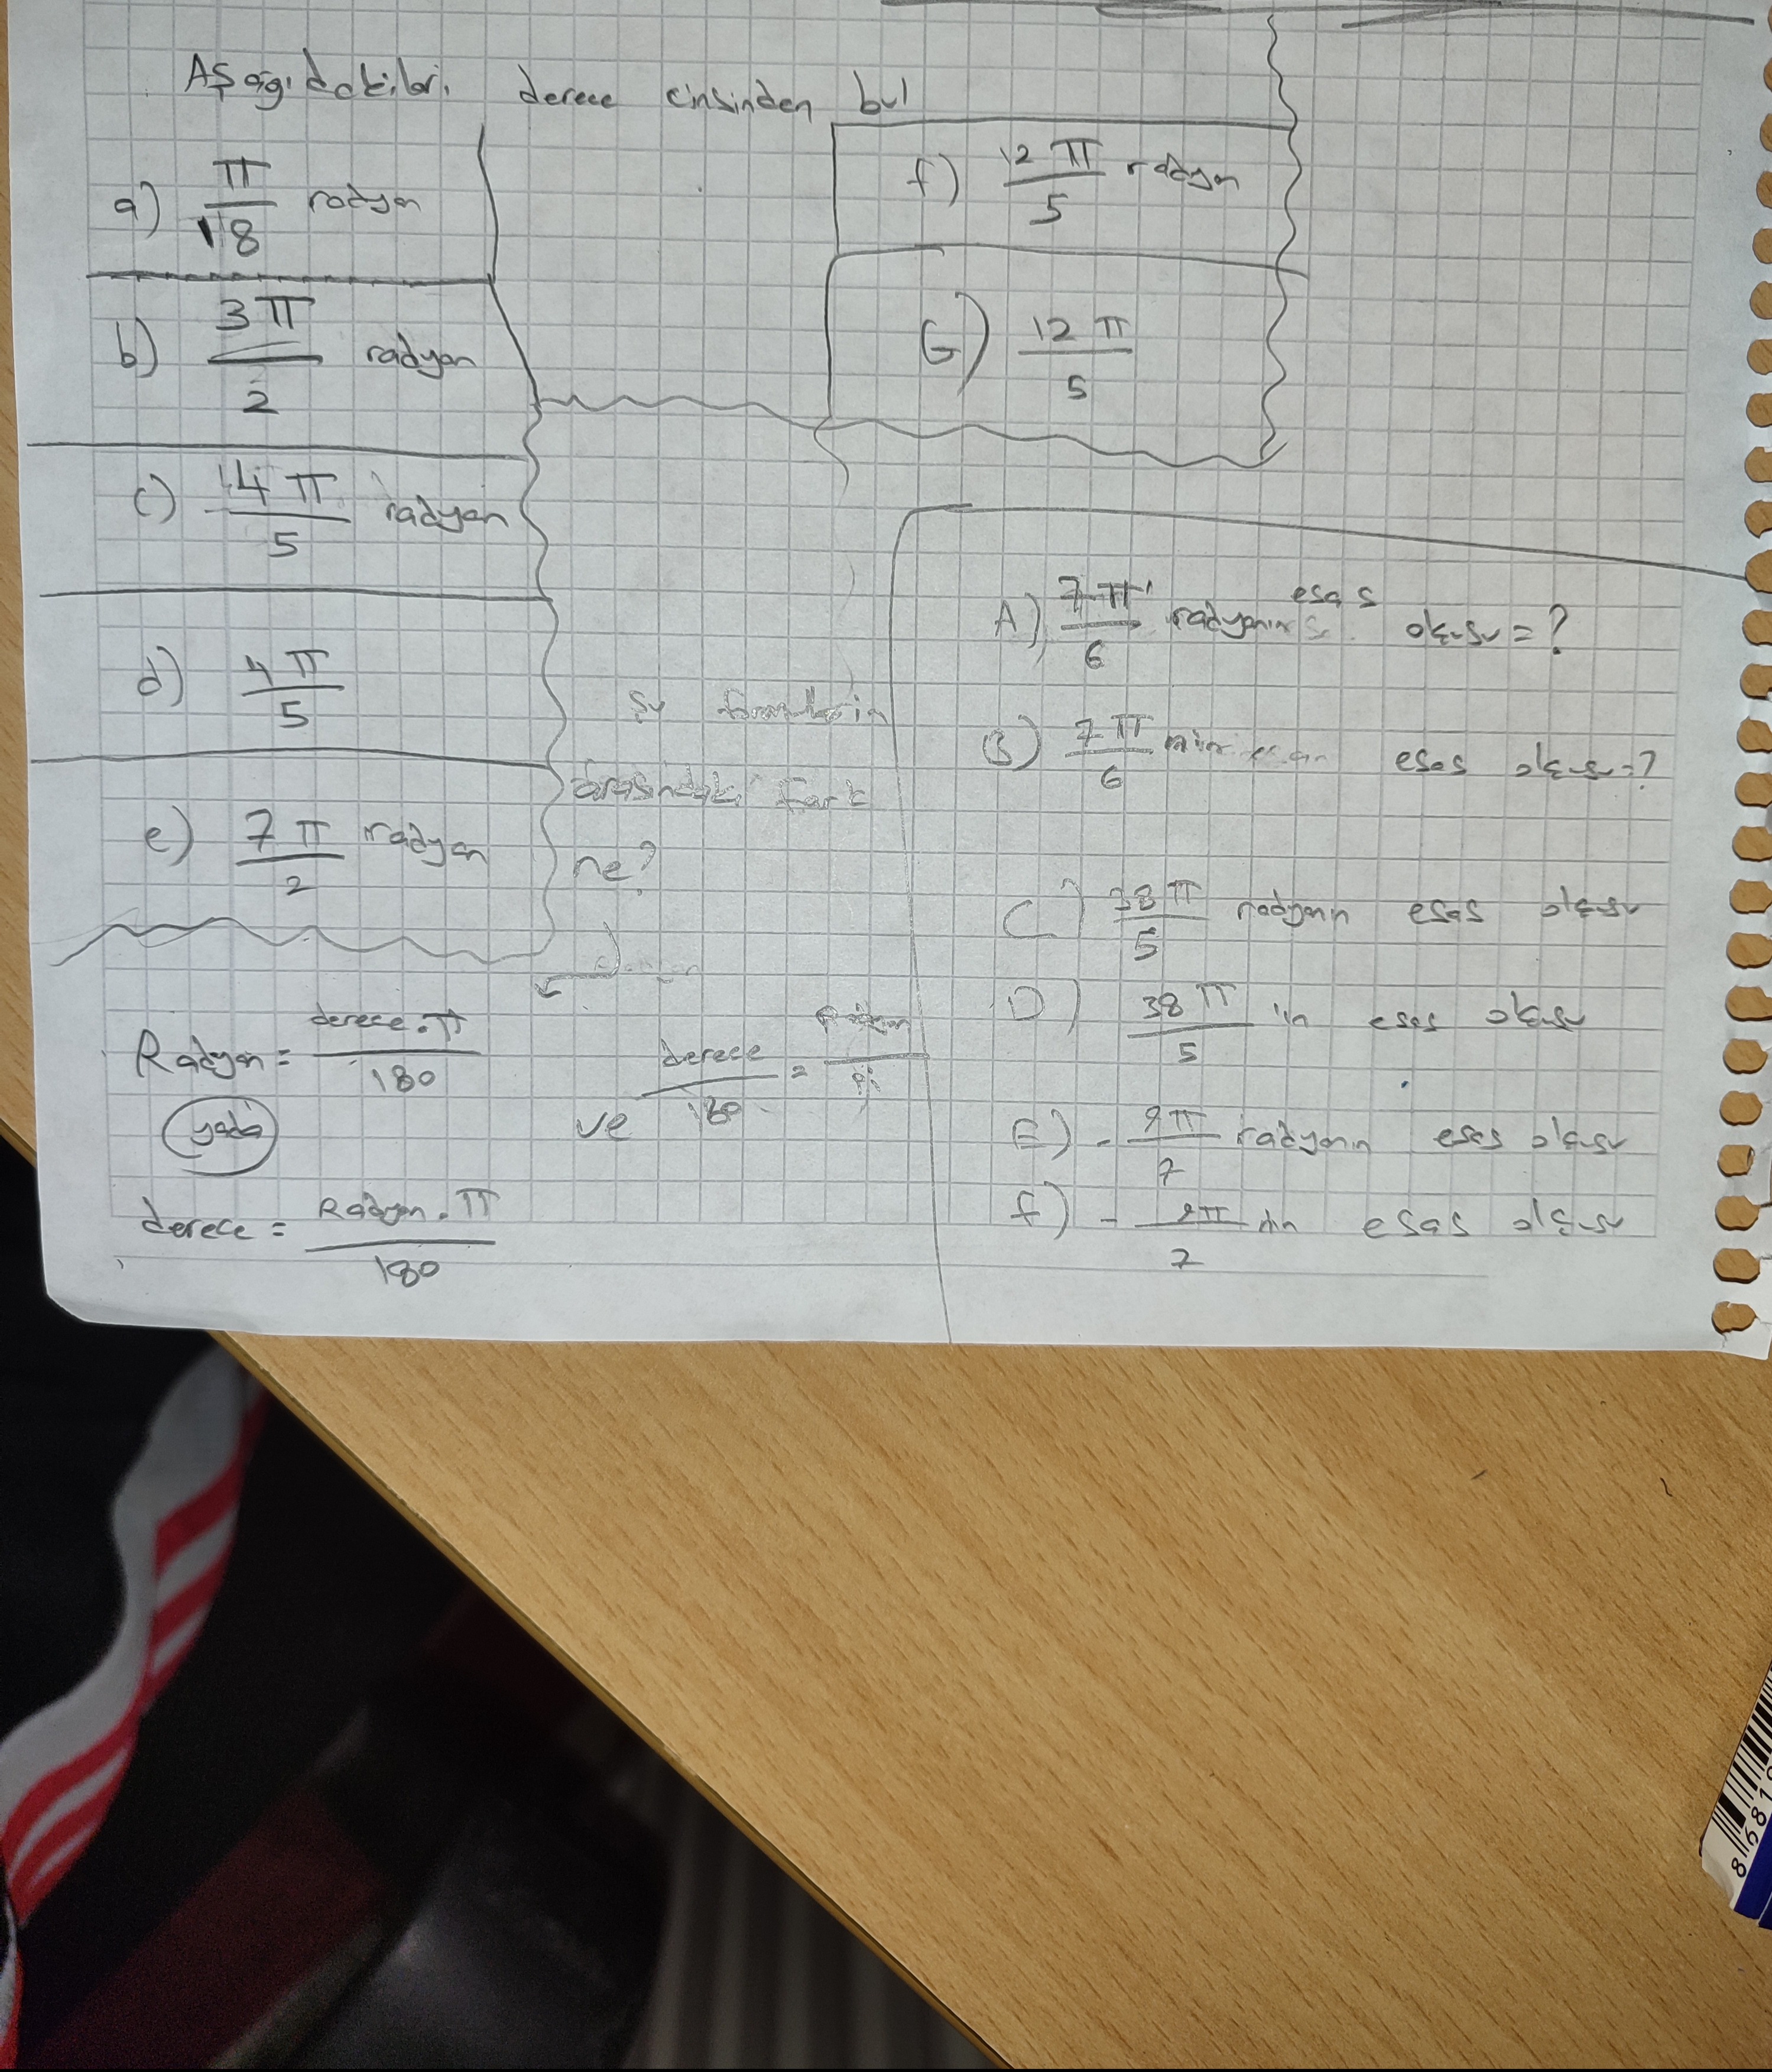 Aşağıdakileri derece cinsinden bul
a) π/18 radyan
b) 3π/2 radyan
c) 4π/5 radyan
d) 4π/5
e) 7π/2 radyan
f) 12π/5 radyan
G) 12π/5
Şu formüllerin
arasındaki fark
ne?
Radyan = derece.π/180
yada
derece = Radyan.π/180
ve derece/180 = Radyan/
A) 7π/6 radyanın esas ölçüsü = ?
B) 7π/6 esas ölçüsü = ?
C) 38π/5 radyanın esas ölçüsü
D) 38π/5 in esas ölçüsü
E) - 9π/7 radyanın esas ölçüsü
f) - 9π/7 nin esas ölçüsü
86818